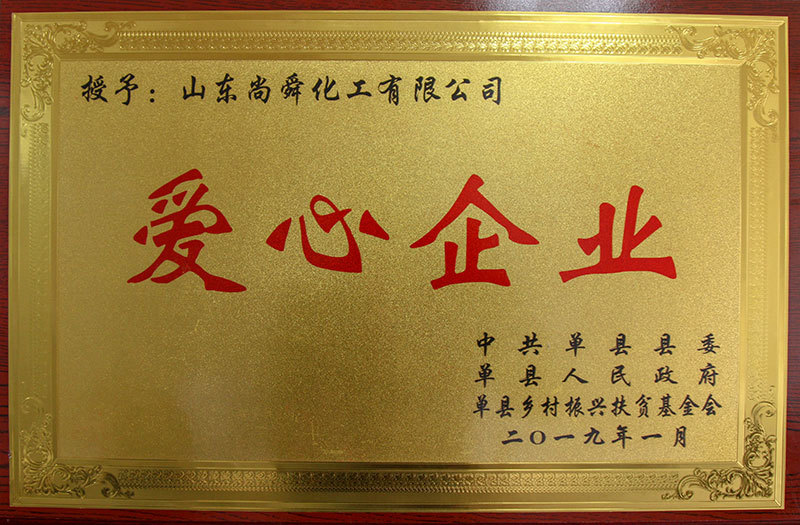 授予：山东尚舜化工有限公司
爱心企业
中共单县县委
单县人民政府
单县乡村振兴扶贫基金会
二〇一九年一月